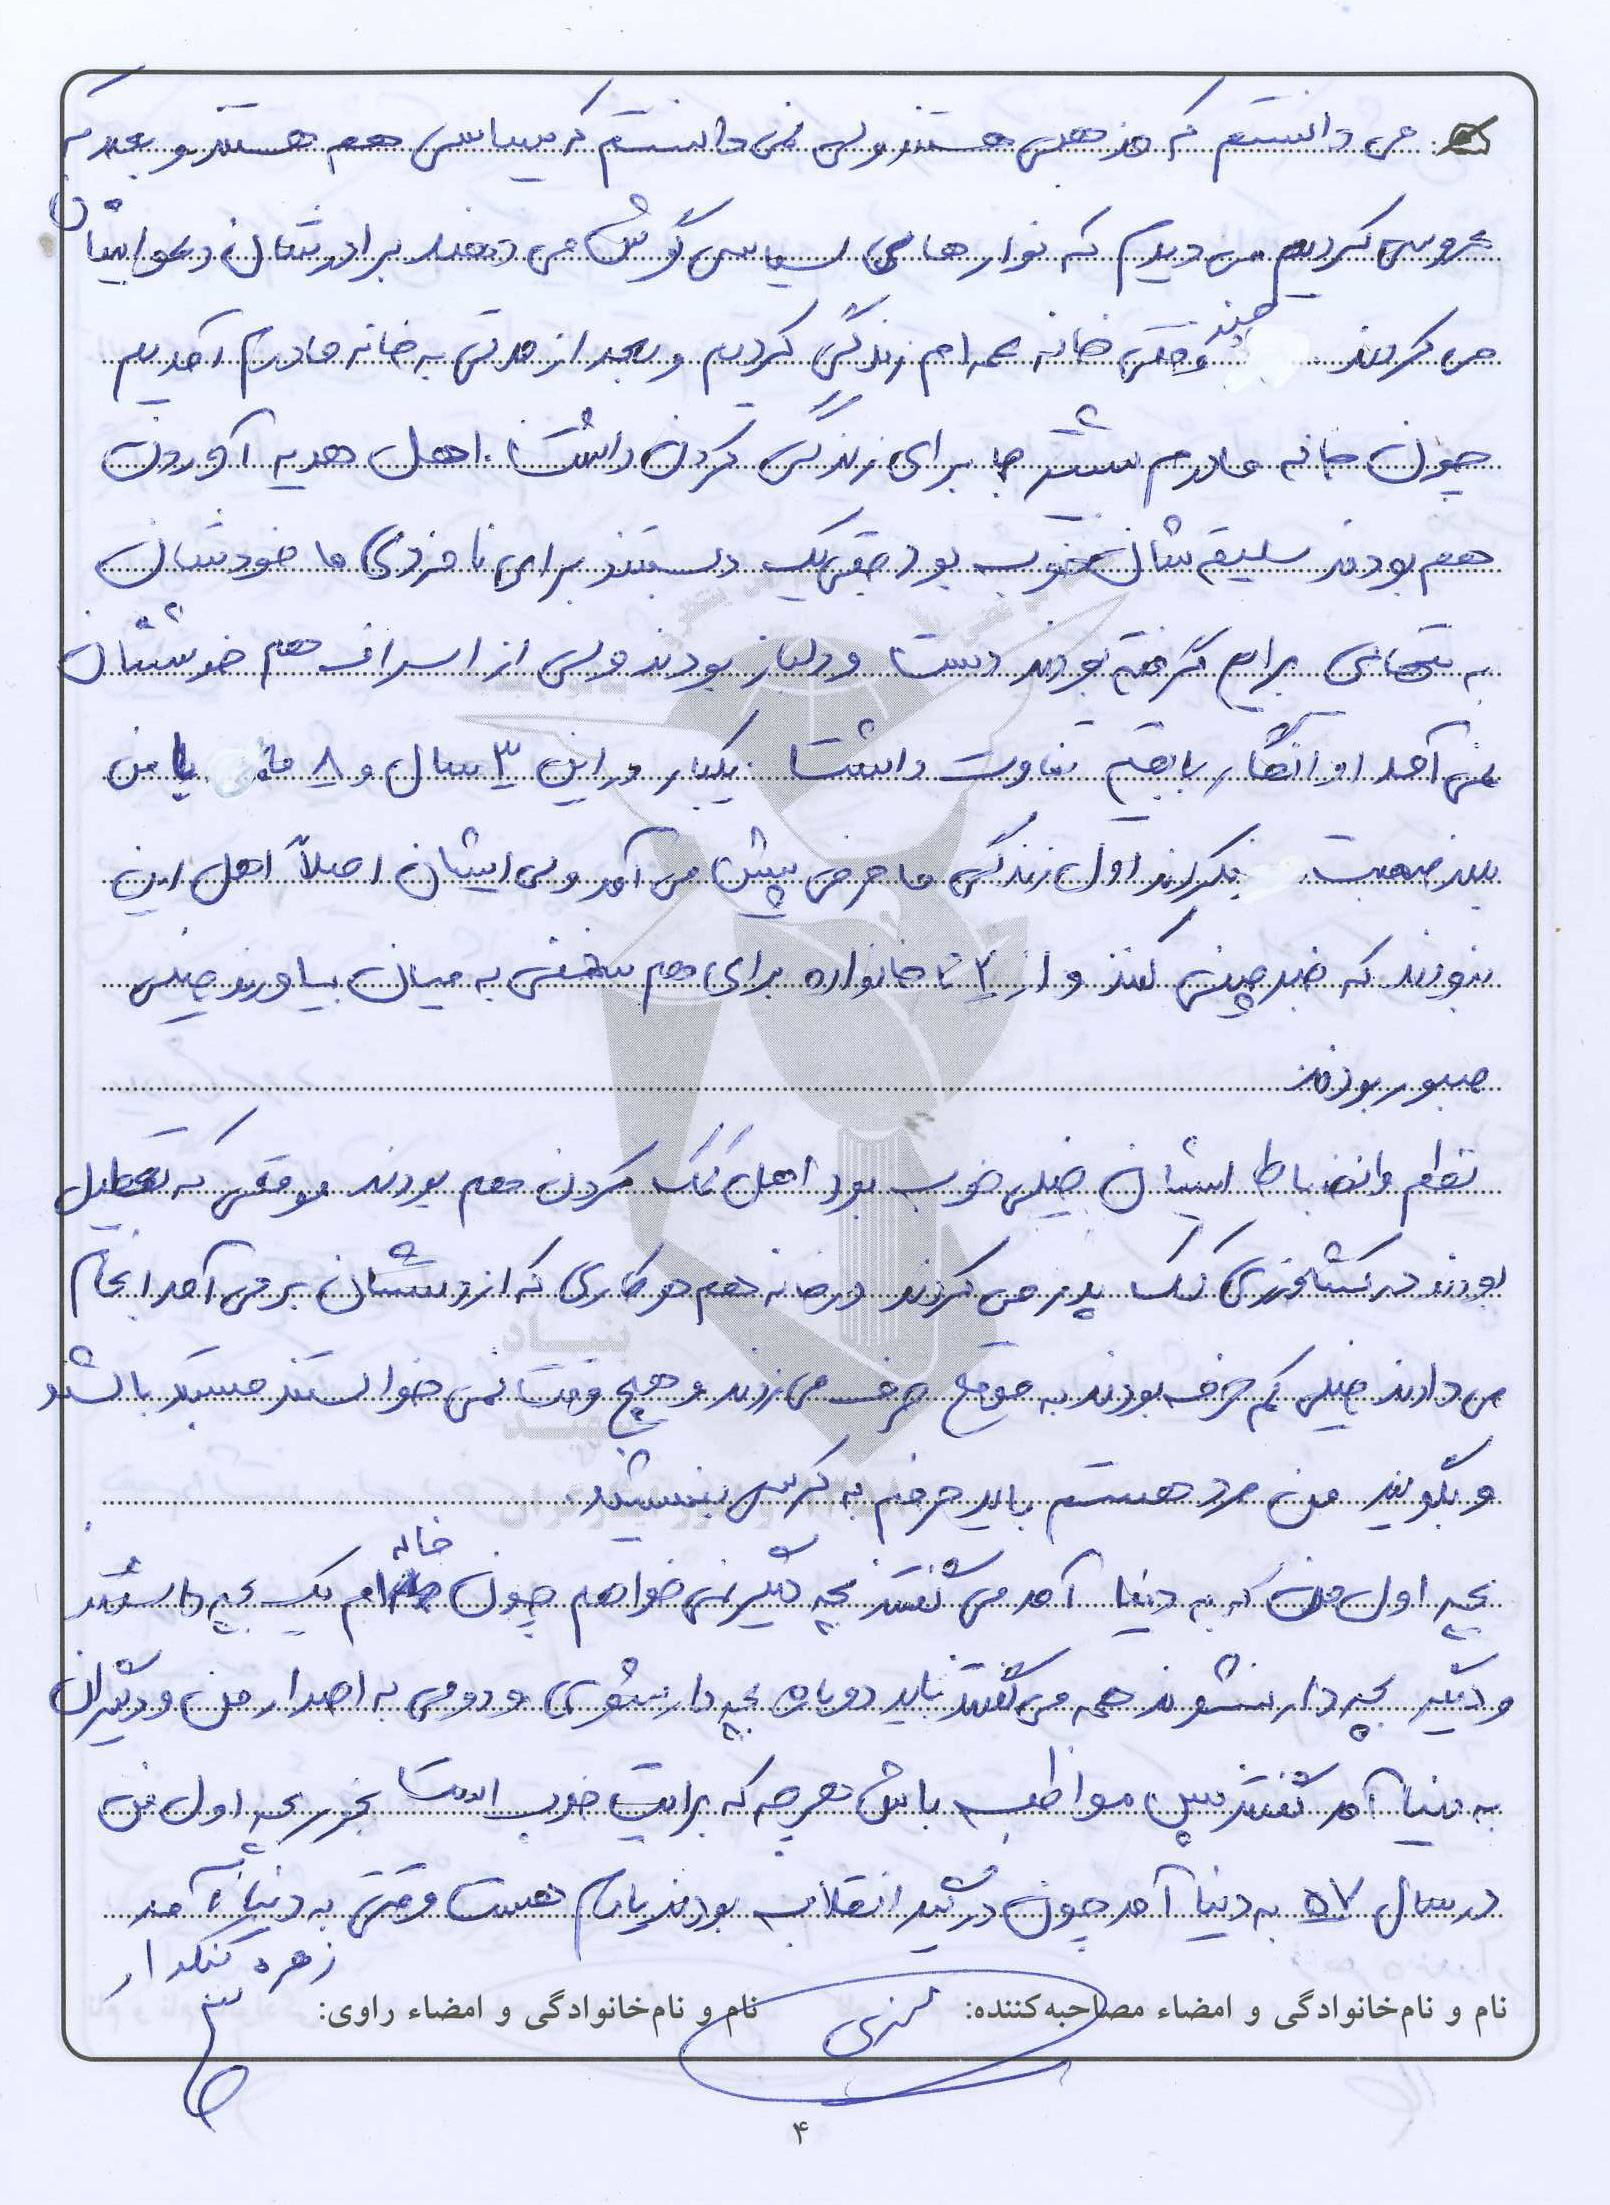 می دانستم که مذهبی هستند ولی نمی دانستم که سیاسی هم هستند و بعد که
عروسی کردیم می دیدم که نوارهای سیاسی گوش می دهند برادرشان دعوا ایشان
می کردند چند وقتی خانه عمه ام زندگی کردیم و بعد از مدتی به خانه مادرم آمدیم
چون خانه مادرم بیشتر جا برای زندگی کردن داشت. اهل هدیه آوردن
هم بودند سلیقه شان خوب بود حتی یک دستبند برای نامزدی ما خودشان
به تنهایی برایم گرفته بودند دست و دلباز بودند ولی از اسراف هم خوششان
نمی آمد او انگار با بقیه تفاوت داشت. یکبار در این ۳ سال و ۸ ماه با من
بلند صحبت نکردند اول زندگی ما حرفی پیش می آمد ولی ایشان اصلاً اهل این
نبودند که خبر چینی کنند و از ۲ تا خانواده برای هم سخنی به میان بیاورند خیلی
صبور بودند
نظم و انضباط ایشان خیلی خوب بود اهل کمک کردن هم بودند موقعی که تعطیل
بودند در کشاورزی کمک پدر می کردند در خانه هم هر کاری که از دستشان بر می آمد انجام
می دادند خیلی کم حرف بودند به موقع حرف می زدند و هیچ وقت نمی خواستند مستبد باشند
و بگویند من مرد هستم باید حرفم به کرسی بنشیند.
بچه اول من که به دنیا آمد می گفتند بچه دیگر نمی خواهم چون خاله ام یک بچه داشتند
و دیگر بچه دار نشوند همه می گفتند نباید دوباره بچه دار بشوی و دومی به اصرار من و دیگران
به دنیا آمد گفتند پس مواظب باش هر چه که برایت خوب است بخور بچه اول من
در سال ۵۷ به دنیا آمد چون درگیر انقلاب بودند یادم هست وقتی به دنیا آمد
زهره تنگدار
نام و نام‌خانوادگی و امضاء مصاحبه‌کننده: نام و نام‌خانوادگی و امضاء راوی:
۴